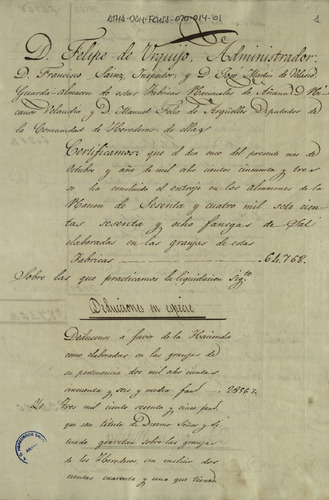 ATHA-DGH-FCHSA-070-014-01
1
D. Felipe de Urquijo, Administrador:
D. Francisco Sainz, Inspector, y D. José Martin de Velasco
Guarda-almacen de estas Fabricas Nacionales de Añana, D.
Velandia y D. Manuel Felix de Arguelles Diputados de
la Comunidad de Herederos de ellas
Certificamos: que el dia once del presente mes de
Octubre y año de mil ocho cientos cincuenta y tres
se ha concluido el entrojo en los almacenes de la
Nacion de Sesenta y cuatro mil sete cien-
tas sesenta y ocho fanegas de Sal
elaboradas en las granjas de estas
Fabricas 64,768.
Sobre las que practicamos la liquidacion Sigte.
Deducciones en especie
Deducense á favor de la Hacienda
como elaboradas en las granjas de
su pertenencia dos mil ocho cientas
cincuenta y seis y media fans.
Yd. tres mil ciento sesenta y cinco fans.
que con titulo de Duernos Secas y di-
gravitan sobre las granjas
de los Herederos, sin incluir dos
cientas cuarenta y una que tienen